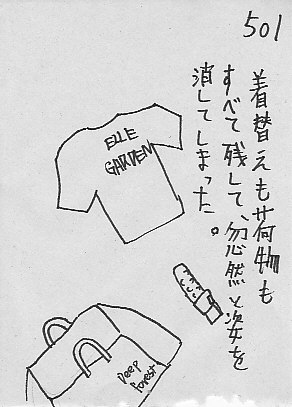 501
着替えも荷物も
すべて残して、忽然と姿を
消してしまった。
ELLE
GARDEN
Deep
Forest